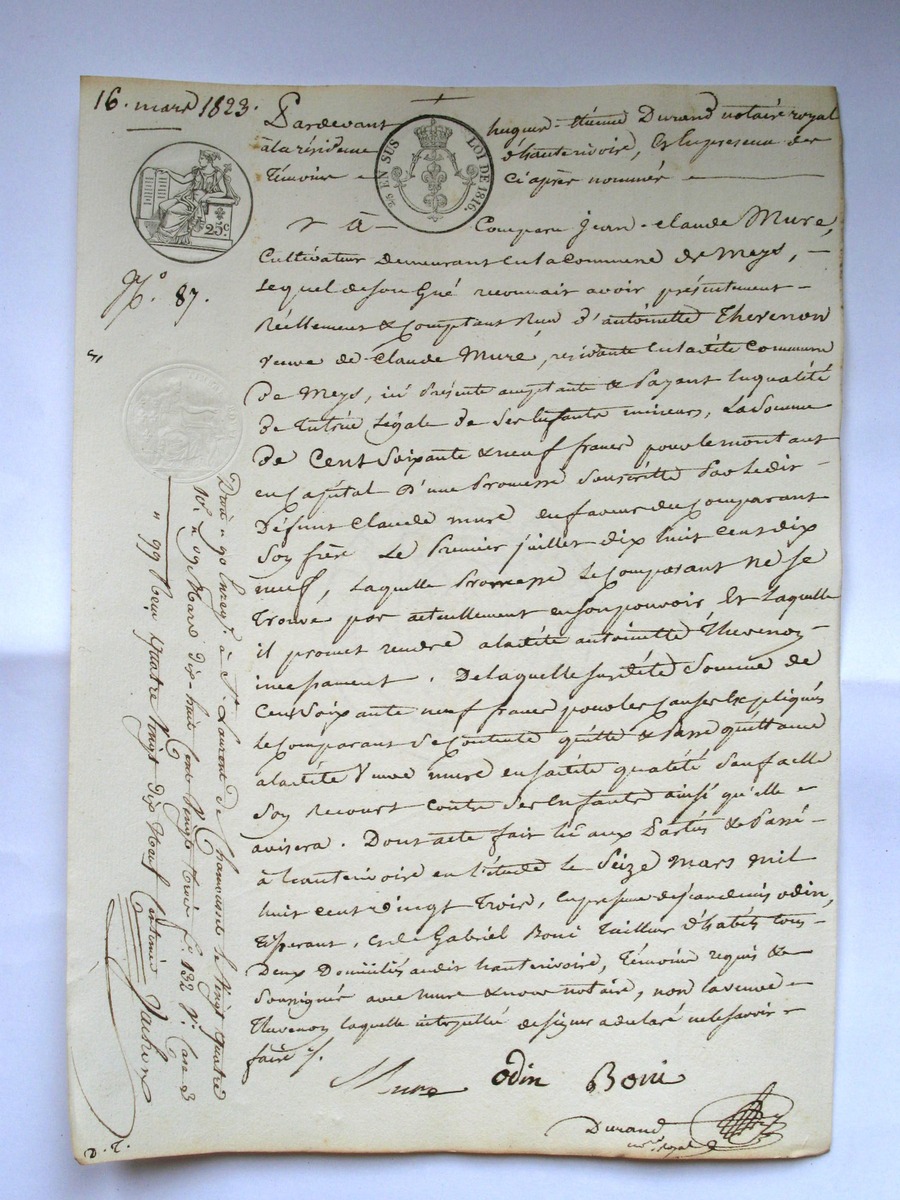 16. mars 1823.
Pardevant hugues-étienne Durand notaire royal
à la résidence d'hauterivoire, & en presence des
témoins ci après nommés
EN SUS LOI DE 1816.
25c.
N.° 87.
Comparu Jean-Claude Mure,
Cultivateur demeurant en la commune de Meys,
Lequel de son gré reconnait avoir présentement
Réellement & Comptant Reçu d'antoinette Thevenon
veuve de Claude Mure, residante en la dite Commune
De Meys, ici Présente acceptante & Payant en qualité
de tutrice Légale de Ses Enfants mineurs, La Somme
De Cent Soixante & neuf francs pour le montant
en Capital d'une Promesse Souscritte Par le dit
Défunt Claude mure en faveur du Comparant
Son frère Le Premier juillet dix huit cent dix
neuf, Laquelle Promesse le Comparant ne se
trouve pas actuellement en son pouvoir, Et Laquelle
il promet rendre a la dite antoinette Thevenon
incessament. De laquelle susdite Somme de
Cent Soixante neuf francs pour les Causes Expliqués
le Comparant Se Contente quitte & Passe quittance
a la dite Veuve mure en sa dite qualité Sauf a elle
Son recourt Contre Ses Enfants ainsi qu'elle
avisera. Dont acte fait lu aux Parties & Passé
à hauterivoire en l'étude le Seize mars mil
huit cent vingt trois, en presence de odin,
tisserant, & de Gabriel Boni tailleur d'habits tous
Deux Domiciliés audit hauterivoire, Témoins requis &
Soussignés avec mure & nous notaire, non la veuve
Thevenon laquelle interpellée de signer a déclaré ne le savoir
faire ./.
Mure odin Boni
Durand
n.re royal
Enreg.t à S.t Laurent de Chamousset le vingt quatre
Mars dix-huit cent vingt trois f.o 132 v.o Case 3
quatre vingt dix neuf centimes
D. T.